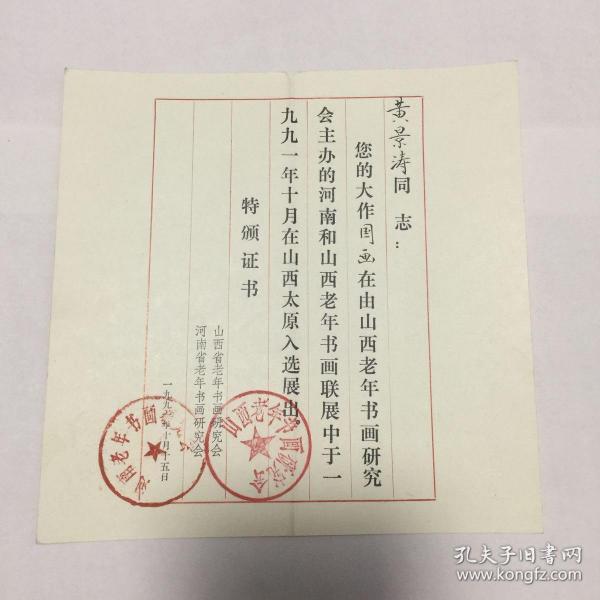 黄景涛同志：
您的大作国画在由山西老年书画研究
会主办的河南和山西老年书画联展中于一
九九一年十月在山西太原入选展出。
特颁证书
山西省老年书画研究会
河南省老年书画研究会
一九九一年十月十五日
山西老年书画研究会
河南老年书画
孔夫子旧书网
www.kongfz.com